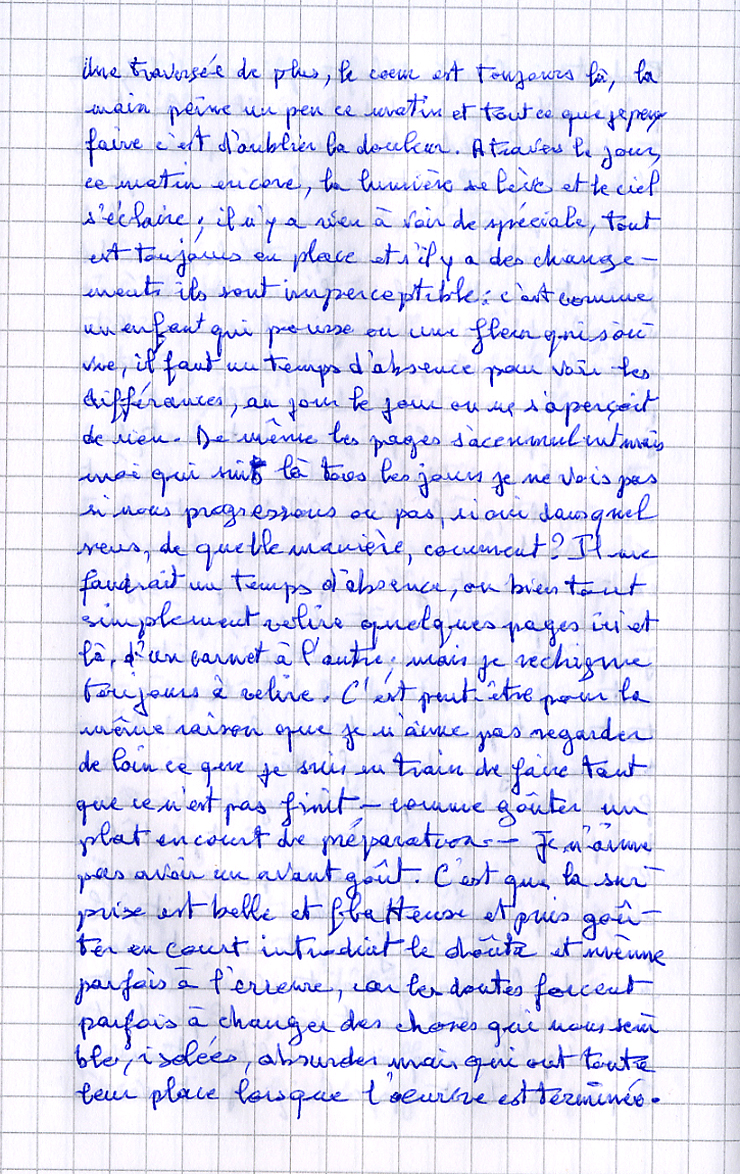 Une traversée de plus, le coeur est toujours là, la
main peine un peu ce matin et tout ce que je peux
faire c'est d'oublier la douleur. A travers le jour,
ce matin encore, la lumière se lève et le ciel
s'éclaire ; il n'y a rien à voir de spéciale, tout
est toujours en place et s'il y a des change-
ments ils sont imperceptible ; c'est comme
un enfant qui pousse ou une fleur qui s'ou
vre, il faut un temps d'absence pour voir les
différances, au jour le jour on ne s'aperçoit
de rien. De même les pages s'accumulent mais
moi qui suis là tous les jours je ne vois pas
si nous progressons ou pas, si oui dans quel
sens, de quelle manière, comment ? Il me
faudrait un temps d'absence, ou bien tout
simplement relire quelques pages ici et
là, d'un carnet à l'autre ; mais je rechigne
toujours à relire. C'est peut-être pour la
même raison que je n'aime pas regarder
de loin ce que je suis en train de faire tant
que ce n'est pas finit - comme goûter un
plat en court de préparation - Je n'aime
pas avoir un avant goût. C'est que la sur-
prise est belle et flatteuse et puis goû-
ter en court introduit le doûte et mène
parfois à l'erreure, car les doutes forcent
parfois à changer des choses qui nous sem
ble, isolées, absurdes mais qui ont toute
leur place lorsque l'oeuvre est terminée.